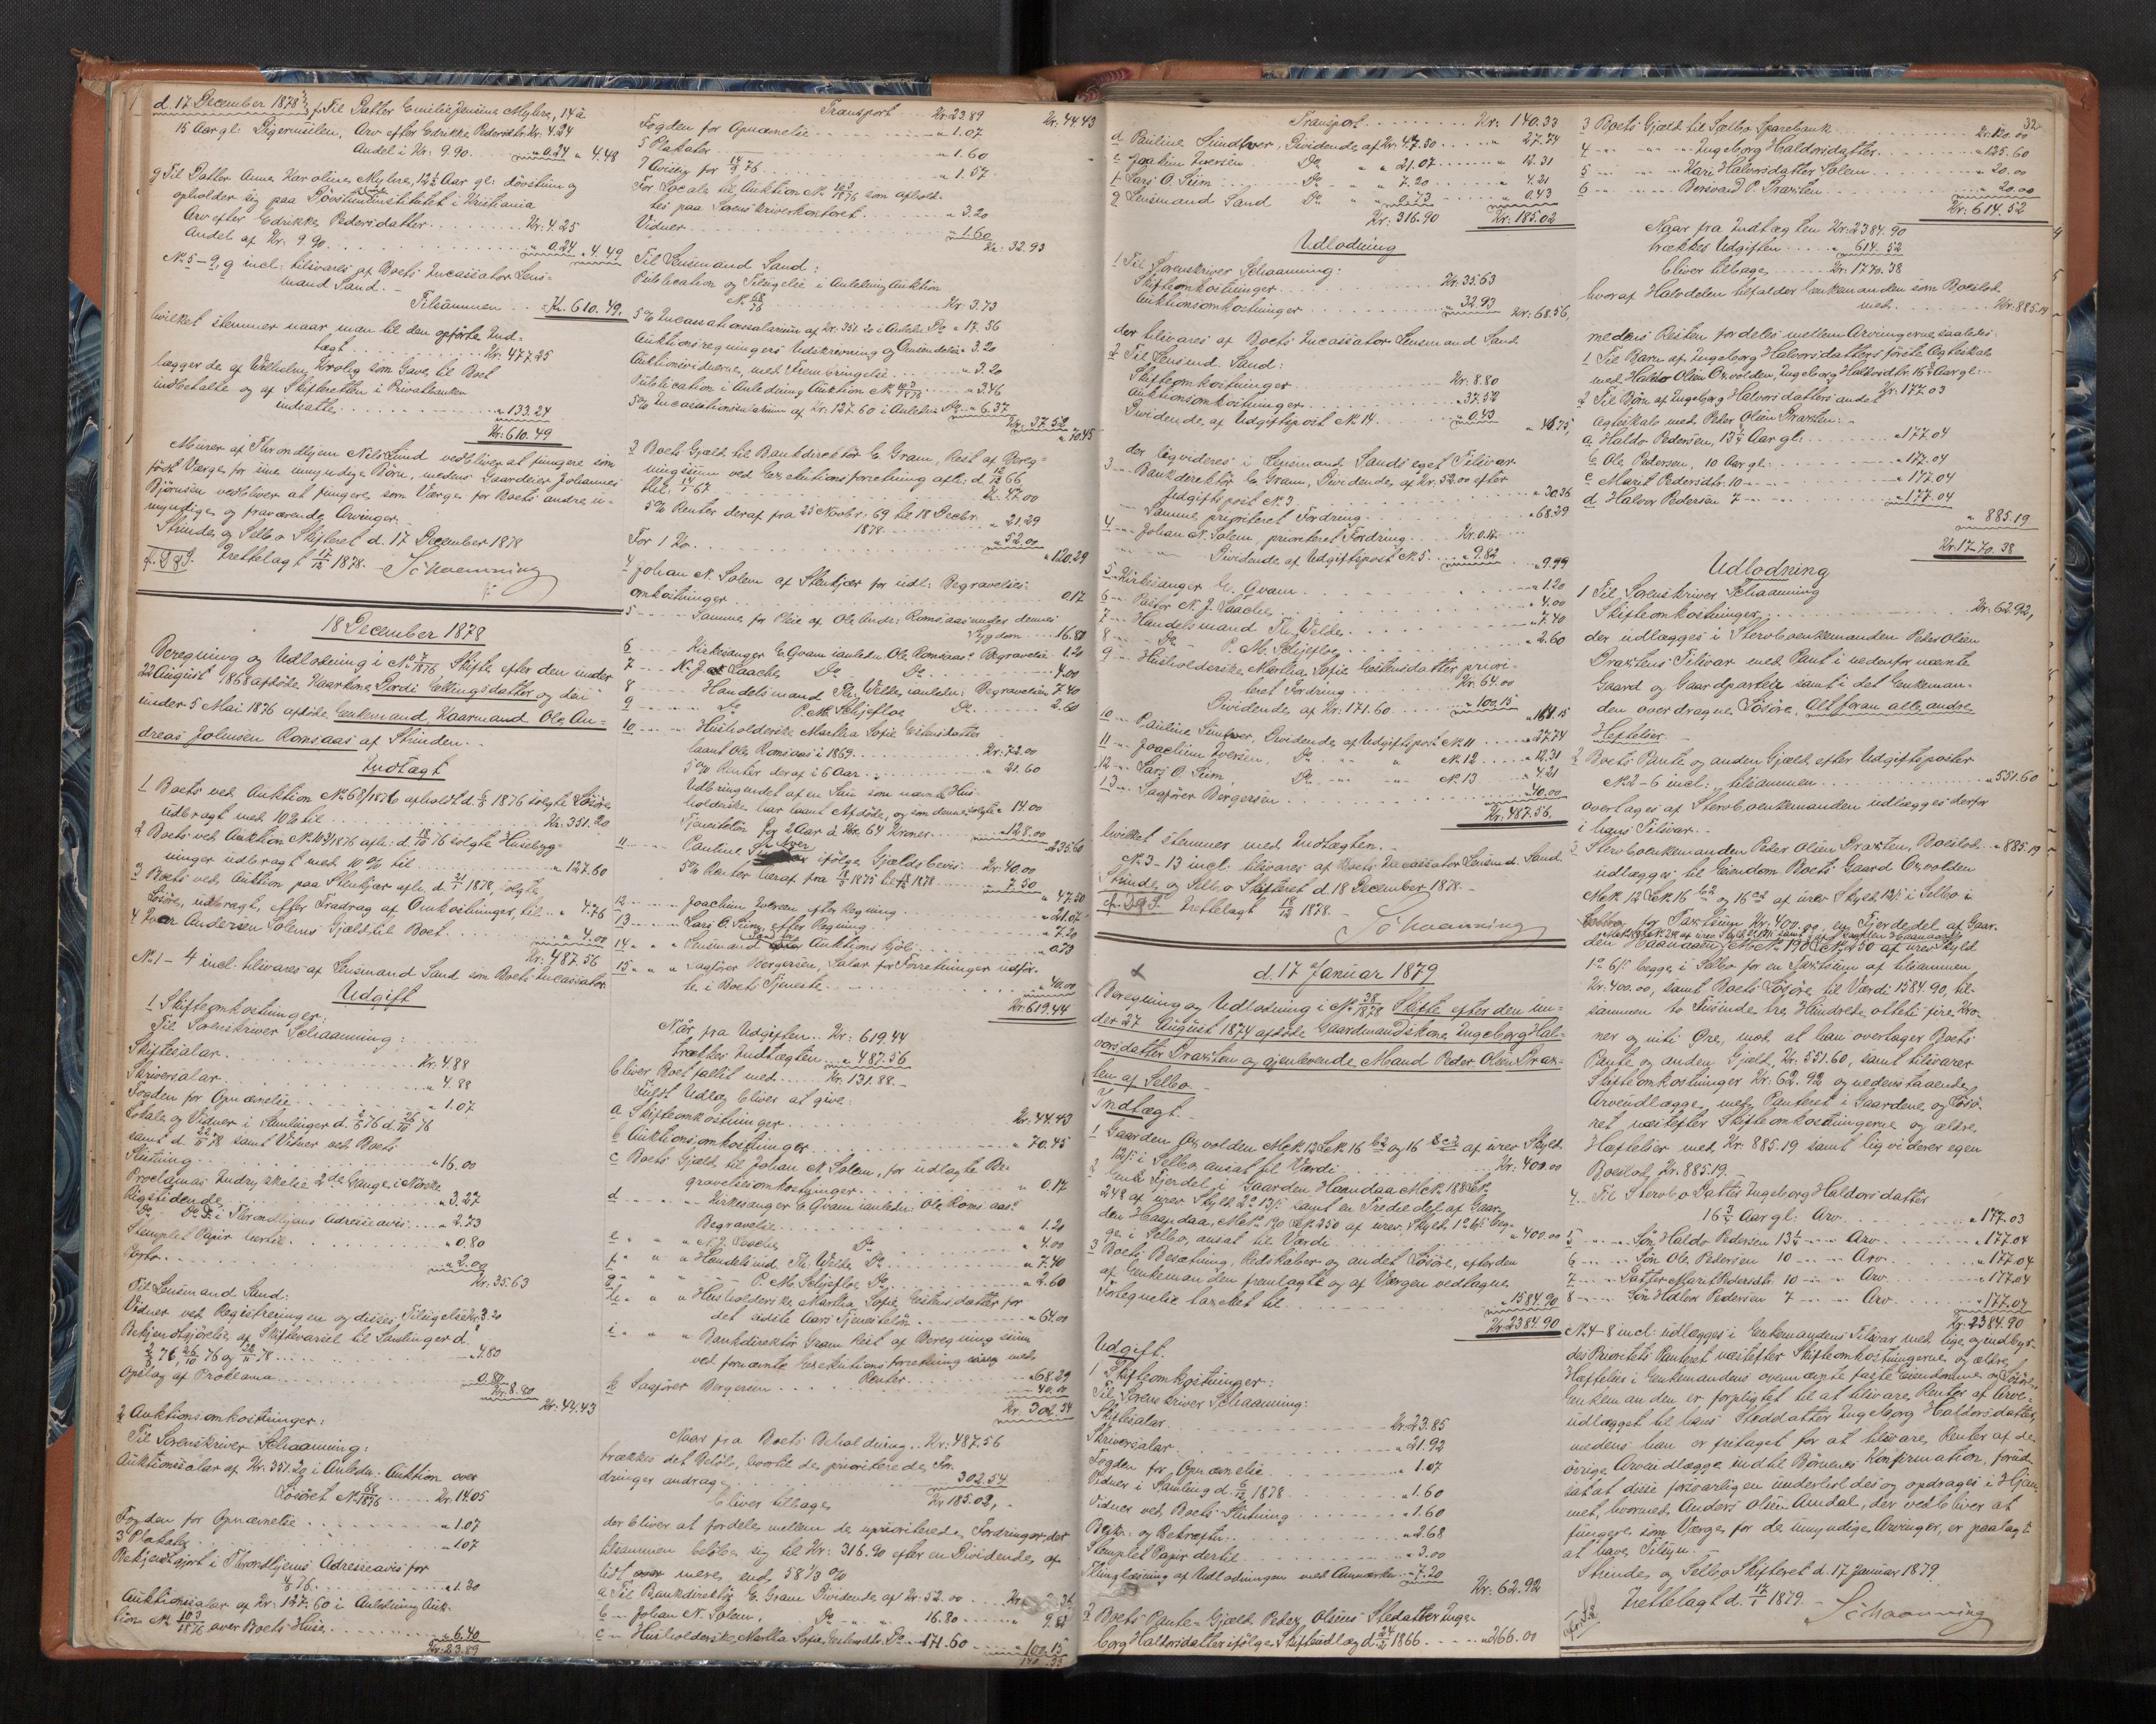 d. 17 December 1878
f Til Datter Emilie Jensine Myhre, 14 á
15 Aar gl: Arv efter Edrikke Pedersdtr. Kr: 4.24
Andel i Kr: 9.90 " 0.24 " 4.48
g Til Datter Anna Karoline Myhre, 12½ Aar gl: døvstum og
opholder sig paa Døvstuminstitutet i Kristiania
Arv efter Edrikke Pedersdatter Kr: 4.25
Andel af Kr: 9.90 " 0.24 " 4.49
No 5-9, g incl. tilsvares af Boets Incassator Lens-
mand Sand.
Tilsammen Kr. 610.49.
hvilket stemmer naar man til den opførte Ind-
tægt Kr: 477.25
lægger de af Wilhelm Krolig som Gave til Boet
indbetalte og af Skifteretten i Privatbanken
indsatte " 133.24
Kr: 610.49
Murer af Throndhjem Nels Lund vedbliver at fungere som
født Værge for sine umyndige Børn, medens Gaardeier Johannes
Bjørnsen vedbliver at fungere som Værge for Boets andre u-
myndige og fraværende Arvinger.
Strinde og Selbo Skifteret d. 17 December 1878
Irettelagt 17/12 1878. Schaanning
18 December 1878
Beregning og Udlodning i No 7/1876 Skifte efter den under
22 August 1868 afdøde Kaarkone Gordi Ellingsdatter og den
under 5 Mai 1876 afdøde Enkemand, Kaarmand Ole An-
dreas Johnsen Romsaas af Strinden.
Indtægt
1 Boets ved Auktion No 68/1876 afholdt d. 6/5 1876 solgte Løsøre
udbragt med 10% til Kr: 351.20
2 Boets ved Auktion No 103/1876 afh: d. 18/10 76 solgte Husebyg-
ninger udbragt med 10% til " 127.60
3 Boets ved Auktion paa Stenkjær afh. d. 21/1 1878, solgte
Løsøre, udbragt, efter Fradrag af Omkostninger, til " 4.76
4 Ivar Andersen Solems Gjæld til Boet " 4.00
Kr: 487.56
No 1-4 incl. tilsvares af Lensmand Sand som Boets Incassator
Udgift
1 Skifteomkostninger:
Til Sorenskriver Schaanning:
Skiftesalar Kr: 4.88
Skriversalar " 4.88
Fogden for Opnævnelse " 1.07
Lokale og Vidner i Samlinger d. 2/6 76 d. 26/10 76
samt d. 22/11 78 samt Vidner ved Boets
Slutning " 16.00
Proclamas Indrykkelse 2de Gange i Norske
Rigstidende " 3.27
Do Do i Throndhjems Adresseavis " 2.73
Stemplet Papir hertil " 0.80
Porto " 2.00
Kr: 35.63
Til Lensmand Sand:
Vidner ved Registreringen og disses Tilsigelse Kr: 3.20
Bekjendtgjørelse af Skiftevarsel til Samlinger d.
2/6 76, 26/10 76 og 22/11 78 " 4.80
Opslag af Proklama 0.80
Kr: 8.80
Kr: 44.43
2 Auktionsomkostninger:
Til Sorenskriver Schaanning:
Auktionssalar af Kr. 351.20 i Anledn. Auktion over
Løsøret No 68/1876 Kr. 14.05
Fogden for Opnævnelse " 1.07
3 Plakater " 1.07
Bekjendtgjort i Throndhjems Adresseavis for
4/5 76 " 1.30
Auktionssalar af Kr: 127.60 i Anledning Auk-
tion No 103/1876 over Boets Huse " 6.40
Kr: 23.89
Transport Kr: 23.89 Kr: 44.43
Fogden for Opnævnelse " 1.07
5 Plakater " 1.60
7 Avisby for 14/9 76 " 1.57
For Locale til Auktion No 103/1876 som afhold-
tes paa Sorenskriverkontoret " 3.20
Vidner " 1.60
Kr: 32.93
Til Lensmand Sand:
Publication og Tilsigelse i Anledning Auktion
No 68/76 Kr: 3.73
5% Incassationssalarium af Kr: 351.20 i Anledn. Do " 17.56
Auktionsregningers Udskrivning og Omsendelse " 3.20
Auktionsvidnerne, med Frembringelse " 3.20
Publication i Anledning Auktion No 103/1876 " 3.46
5% Incassationssalarium af Kr: 127.60 i Anledn Do " 6.37
Kr. 37.52
" 70.45
3 Boets Gjæld til Bankdirektør E. Gram, Rest af Bereg-
ningssum ved Exekutionsforretning afh: d. 12/12 66
thl: 14/1 67 Kr. 47.00
5% Renter deraf fra 25 Novbr. 69 til 18 Decbr.
1878 " 21.29
For 1 Ko " 52.00
" 120.29
4 Johan N. Solem af Stenkjær for udl: Begravelses-
omkostninger 0.17
5 Samme for Pleie af Ole Andr: Romsaas under dennes
Sygdom 16.80
6 Kirkesanger E. Qvam i anledn. Ole Romsaas' Begravelse 1.20
7 N. J. Laache Do Do 4.00
8 Handelsmand Th. Welde i anledn: Begravelsen 7.40
9 Do P. M. Schjeflo Do 2.60
10 Husholderske Martha Sofie Estensdatter
laant Ole Romsaas i 1869 Kr: 72.00
5% Renter deraf i 6 Aar " 21.60
Udbringendet af en Sau som nævnte Hus-
holderske har laant Afdøde, og som denne solgte " 14.00
Tjenesteløn for 2 Aar á Kr. 64 Kroner " 128.00
" 235.60
11 Pauline Sundtver ifølge Gjældsbevis Kr: 40.00
5% Renter heraf fra 18/3 1875 til 18/12 1878 " 7.50
" 47.50
12 Joachim Iversen efter Regning " 21.07
13 Lars O. Siim, efter Regning " 7.20
14 " " Lensmand Sand for Auktionskjøb " 0.73
15 " " Sagfører Bergersen, Salar for Forretninger udfør-
te i Boets Tjeneste " 40.00
Kr: 619.44
Når fra Udgiften Kr: 619.44
trækkes Indtægten " 487.56
bliver Boet fallit med Kr. 131.88.
Fuldt Udlæg bliver at give:
a Skifteomkostninger Kr: 44.43
b Auktionsomkostninger " 70.45
c Boets Gjæld til Johan N. Solem, for udlagte Be-
gravelsesomkostninger " 0.17
d Kirkesanger E. Qvam i anledn: Ole Romsaas'
Begravelse " 1.20
e " " N. J. Laache Do " 4.00
f " " Handelsmd. Th. Welde Do " 7.40
g " P. M. Schjeflo Do " 2.60
h " " Husholderske Martha Sofie Estensdatter for
det sidste Aars Tjenesteløn " 64.00
i " " Bankdirektør Gram Rest af Beregningssum
ved fornævnte Exekutionsforretning med
Renter " 68.29
k Sagfører Bergersen " 40.00
Kr: 302.54
Naar fra Boets Beholdning Kr: 487.56
trækkes det Beløb, hvortil de prioriterede For-
dringer andrage 302.54
bliver tilbage Kr 185.02,
der bliver at fordele mellem de uprioriterede Fordringer der
tilsammen beløbe sig til Kr: 316.90 efter en Dividende af
lidt mere end 58 1/3 %
a Til Bankdirektør E. Gram Dividende af Kr: 52.00
b Johan N. Solem Do 16.80 9.82
c Husholderske Martha Sofie Estensdtr. Do 171.60 " 100.15
140.33
Transport Kr: 140.33
d Pauline Sundtver, Dividende af Kr: 47.50 " 27.74
e Joakim Iversen Do " " 21.07 " 12.31
f Lars O. Siim Do " " 7.20 " 4.21
g Lensmand Sand Do " " 0.73 " 0.43
Kr: 316.90 Kr: 185.02
Udlodning
1 Til Sorenskriver Schaanning:
Skifteomkostninger Kr: 35.63
Auktionsomkostninger " 32.93
Kr: 68.56,
der tilsvares af Boets Incassator Lensmand Sand
2 Til Lensmd. Sand:
Skifteomkostninger Kr: 8.80
Auktionsomkostninger " 37.52
Dividende af Udgiftspost No 14 " 0.43
" 46.75,
der liqvideres i Lensmand Sands eget Tilsvar
3 Bankdirektør E. Gram, Dividende af Kr: 52.00 efter
Udgiftspost No 3 " 30.36
Samme prioriteret Fordring " 68.29
4 Johan N. Solem, prioriteret Fordring Kr. 0.17
Dividende af Udgiftspost No 5 " 9.82
" 9.99
5 Kirkesanger E. Qvam " 1.20
6 Pastor N. J. Laache " 4.00
7 Handelsmand Th. Welde " 7.40
8 Do P. M. Schjeflo " 2.60
9 Husholderske Martha Sofie Estensdatter priori-
teret Fordring Kr: 64.00
Dividende af Kr: 171.60 " 100.15
" 164.15
10 Pauline Sundtver, Dividende af Udgiftspost No 11 " 27.74
11 Joachim Iversen, Do " " No 12 " 12.31
12 Lars O. Siim, Do No 13 " 4.21
13 Sagfører Bergersen " 40.00
Kr: 487.56,
hvilket stemmer med Indtægten.
No 3-13 incl. tilsvares af Boets Incassator Lensmd. Sand.
Strinde og Selbo Skifteret d. 18 December 1878.
Irettelagt 18/12 1878.
Schaanning
d. 17 Januar 1879
Beregning og Udlodning i No 38/1878 Skifte efter den un-
der 27 August 1874 afdøde Gaardmandskone Ingeborg Hal-
vorsdatter Draxten og gjenlevende Mand Peder Olsen Drax-
ten af Selbo
Indtægt
1 Gaarden Qvolden M.No 12 L.No 16 b2 og 16 c2 af urev. Skyld
12 i Selbo, ansat til Værdi Kr: 400.00
2 Een Fjerdel i Gaarden Haandaa M.No 188 L.No
248 af urev. Skyld samt en Trediedel af Gaar-
den Haandaa, M.No 190 L.No 250 af urev. Skyld beg-
ge i Selbo, ansat til Værdi " 400.00
3 Boets Besætning, Redskaber og andet Løsøre, efter den
af Enkemanden fremlagte og af Værgen vedtagne
Fortegnelse taxeret til " 1584.90
Kr: 2384.90
Udgift.
1 Skifteomkostninger:
Til Sorenskriver Schaanning:
Skiftesalar Kr: 23.85
Skriversalar " 21.92
Fogden for Opnævnelse " 1.07
Vidner i Samling d. 5/12 1878 " 1.60
Vidner ved Boets Slutning " 1.60
Beskr. og Bekræftn. " 2.68
Stemplet Papir dertil " 3.00
Thinglæsning af Udlodningen med Anmærkn. " 7.20
Kr: 62.92
2 Boets Pante-Gjæld Peder Olsens Steddatter Inge-
borg Haldorsdatter ifølge Skifteudlæg d. 24/2 1866 " 266.00
32
3 Boets Gjæld til Sælbo Sparebank Kr: 120.00
4 Ingeborg Haldorsdatter " 125.60
5 Kari Halvorsdatter Solem " 20.00
6 Bersvend P. Draxten " 20.00
Kr: 614.52
Naar fra Indtægten Kr: 2384.90
trækkes Udgiften " 614.52
bliver tilbage Kr: 1770.38
hvoraf Halvdelen tilfalder Enkemanden som Boeslod
med Kr: 885.19
medens Resten fordeles mellem Arvingerne saaledes:
1 Til Barn af Ingeborg Halvorsdatters første Ægteskab
med Haldo Olsen Qvolden, Ingeborg Haldorsdtr. 16¾ Aar gl:
Kr: 177.03
2 Til Børn af Ingeborg Halvorsdatters andet
Ægteskab med Peder Olsen Draxten:
a Haldo Pedersen, 13¼ Aar gl: " 177.04
b Ole Pedersen, 10 Aar gl: " 177.04
c Marit Pedersdtr. 10 " 177.04
d Halvor Pedersen 7 " 177.04
" 885.19
Kr: 1770.38
Udlodning
1 Til Sorenskriver Schaanning
Skifteomkostninger Kr: 62.92,
der udlægges i Stervboenkemanden Peder Olsen
Draxtens Tilsvar med Pant i nedenfor nævnte
Gaard og Gaardparter samt i det Enkeman-
den overdragne Løsøre, Alt foran alle andre
Heftelser.
2 Boets Pante og anden Gjæld, efter Udgiftsposter
No 2-6 incl: tilsammen " 551.60
overtages af Stervboenkemanden udlægges derfor
i hans Tilsvar.
3 Stervboenkemanden Peder Olsen Draxten, Boeslod " 885.19
udlægges til Eiendom Boets Gaard Qvolden
M.No 12 L.No 16 b2 og 16 c2 af urev. Skyld 12 i Selbo
for Taxtsum Kr. 400.00 en Fjerdedel af Gaar-
den Haandaa M.No 190 L.No 250 af urev. Skyld
begge i Selbo for en Taxtsum af tilsammen
Kr. 400.00, samt Boets Løsøre, til Værdi 1584.90, til-
sammen to Tusinde tre Hundrede otteti fire Kro-
ner og niti Øre, mod at han overtager Boets
Pante og anden Gjæld, Kr. 551.60, samt tilsvarer
Skifteomkostninger Kr: 62.92 og nedenstaaende
Arveudlægge med Panteret i Gaardene og Løsø-
ret næstefter Skifteomkostningerne og ældre
Hæftelser med Kr. 885.19 samt liqviderer egen
Boeslod, Kr. 885.19
4 Til Stervbo Datter Ingeborg Haldorsdatter
16¾ Aar gl: Arv " 177.03
5 Søn Haldo Pedersen 13¼ Arv " 177.04
6 Søn Ole Pedersen 10 Arv " 177.04
7 Datter Marit Pedersdtr. 10 Arv " 177.04
8 Søn Halvor Pedersen 7 Arv " 177.04
Kr: 2384.90
No 4-8 incl: udlægges i Enkemandens Tilsvar med lige og indbyr-
des Prioritets Panteret næstefter Skifteomkostningerne og ældre
Hæftelser i Enkemandens ovennævnte faste Eiendomme og Løsøre.
Enkemanden er forpligtet til at tilsvare Renter af Arve-
udlægget til hans Steddatter Ingeborg Haldorsdatter,
medens han er fritaget for at tilsvare Renter af de
øvrige Arveudlægge indtil Børnenes Konfirmation, forud-
sat at disse forsvarligen underholdes og opdrages i Hjem-
met, hvormed Anders Olsen Amdal, der vedbliver at
fungere som Værge for de umyndige Arvinger, er paalagt
at have Tilsyn.
Strinde og Selbo Skifteret d. 17 Januar 1879
Irettelagt d. 17/1 1879.
Schaanning